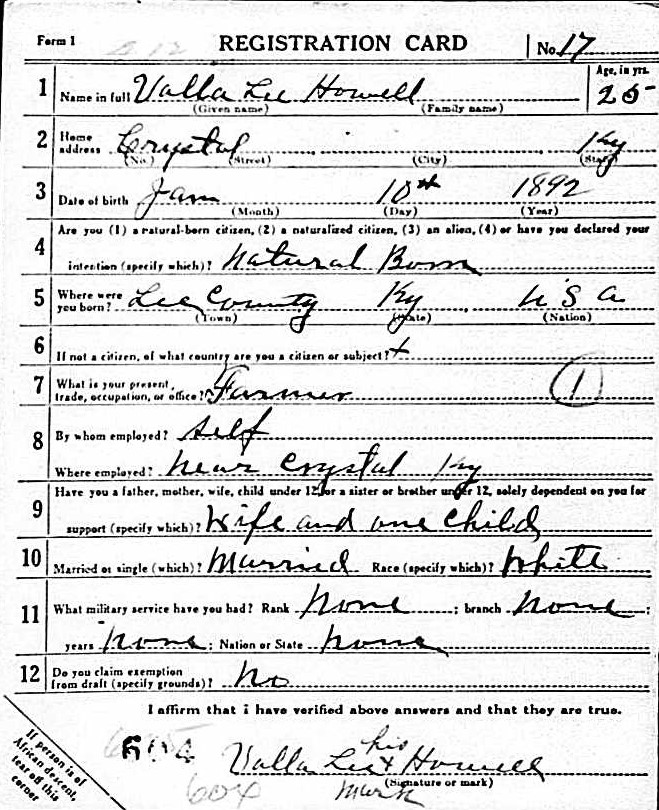 Form 1 REGISTRATION CARD No. 17
1 Name in full Valla Lee Howell Age, in yrs. 25
(Given name) (Family name)
2 Home address Crystal Ky
(No.) (Street) (City) (State)
3 Date of birth Jan 10th 1892
(Month) (Day) (Year)
4 Are you (1) a natural-born citizen, (2) a naturalized citizen, (3) an alien, (4) or have you declared your
intention (specify which)? Natural Born
5 Where were you born? Lee County Ky U S A
(Town) (State) (Nation)
6 If not a citizen, of what country are you a citizen or subject? +
7 What is your present trade, occupation, or office? Farmer 1
8 By whom employed? Self
Where employed? near Crystal Ky
9 Have you a father, mother, wife, child under 12, or a sister or brother under 12, solely dependent on you for
support (specify which)? Wife and one child
10 Married or single (which)? Married Race (specify which)? White
11 What military service have you had? Rank none ; branch none ;
years none ; Nation or State none
12 Do you claim exemption from draft (specify grounds)? No
I affirm that I have verified above answers and that they are true.
If person is of
African descent,
tear off this
corner
604
his
Valla Lee x Howell
(Signature or mark)
604 mark